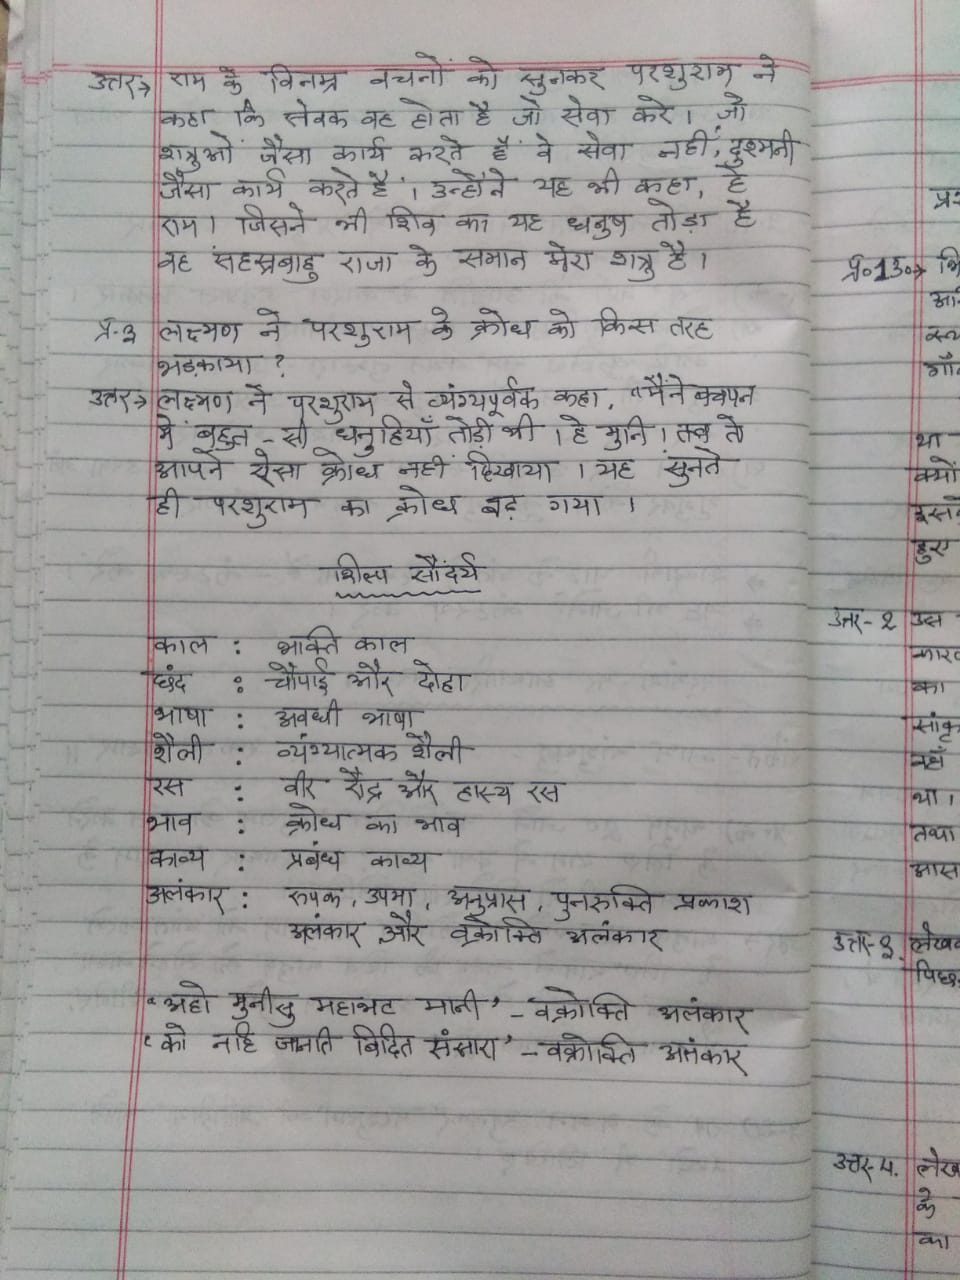 उत्तर→ राम के विनम्र वचनों को सुनकर परशुराम ने
कहा कि सेवक वह होता है जो सेवा करे। जो
शत्रुओं जैसा कार्य करते हैं वे सेवा नहीं, दुश्मनी
जैसा कार्य करते हैं। उन्होंने यह भी कहा, हे
राम। जिसने भी शिव का यह धनुष तोड़ा है
वह सहस्रबाहु राजा के समान मेरा शत्रु है।
प्र-3 लक्ष्मण ने परशुराम के क्रोध को किस तरह
भड़काया ?
उत्तर→ लक्ष्मण ने परशुराम से व्यंग्यपूर्वक कहा, "मैंने बचपन
में बहुत-सी धनुहियाँ तोड़ी थी। हे मुनि। तब तो
आपने ऐसा क्रोध नहीं दिखाया। यह सुनते
ही परशुराम का क्रोध बढ़ गया।
शिल्प सौंदर्य
काल : भक्ति काल
छंद : चौपाई और दोहा
भाषा : अवधी भाषा
शैली : व्यंग्यात्मक शैली
रस : वीर रौद्र और हास्य रस
भाव : क्रोध का भाव
काव्य : प्रबंध काव्य
अलंकार : रूपक, उपमा, अनुप्रास, पुनरुक्ति प्रकाश
अलंकार और वक्रोक्ति अलंकार
'अहो मुनीसु महाभट मानी' - वक्रोक्ति अलंकार
'को नहि जानति बिदित संसारा' - वक्रोक्ति अलंकार
प्र०15०→
था
क्यों
हुए
उत्तर-2 उस
का
नहीं
था।
तथा
उत्तर-3.
उत्तर-4.
के
का